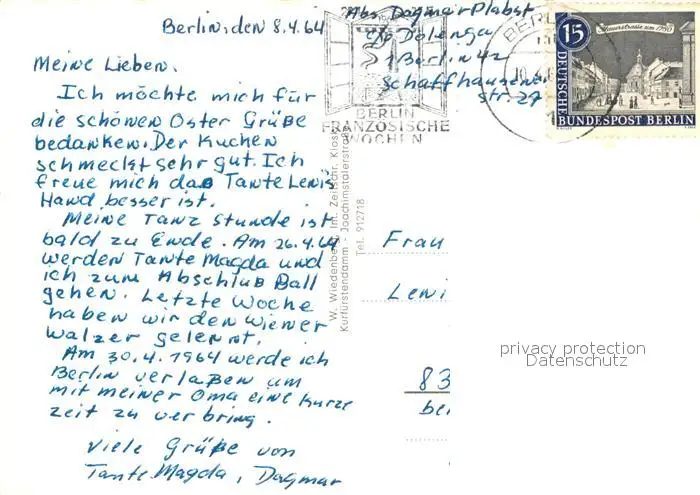 Berlin, den 8.4.64
Abs. Dagmar Plabst
c/o Dolenga
1 Berlin 42
Schaffhausener
str. 27
Meine Lieben.
Ich möchte mich für
die schönen Oster Grüße
bedanken. Der Kuchen
schmeckt sehr gut. Ich
freue mich das Tante Lenis
Hand besser ist.
Meine Tanz stunde ist
bald zu Ende. Am 26.4.64
werden Tante Magda und
ich zum Abschluß Ball
gehen. Letzte Woche
haben wir den Wiener
Walzer gelernt.
Am 30.4.1964 werde ich
Berlin verlaßen um
mit meiner Oma eine kurze
zeit zu verbring.
Viele Grüße von
Tante Magda, Dagmar
BERLIN
FRANZÖSISCHE
WOCHEN
BERL
15
Mauerstrasse um 1780
DEUTSCHE
BUNDESPOST BERLIN
W. Wiedenberg Int. Zeitschr. Kiosk
Kurfürstendamm - Joachimstalerstraße
Tel. 912718
Frau
Leni
83
bei
privacy protection
Datenschutz